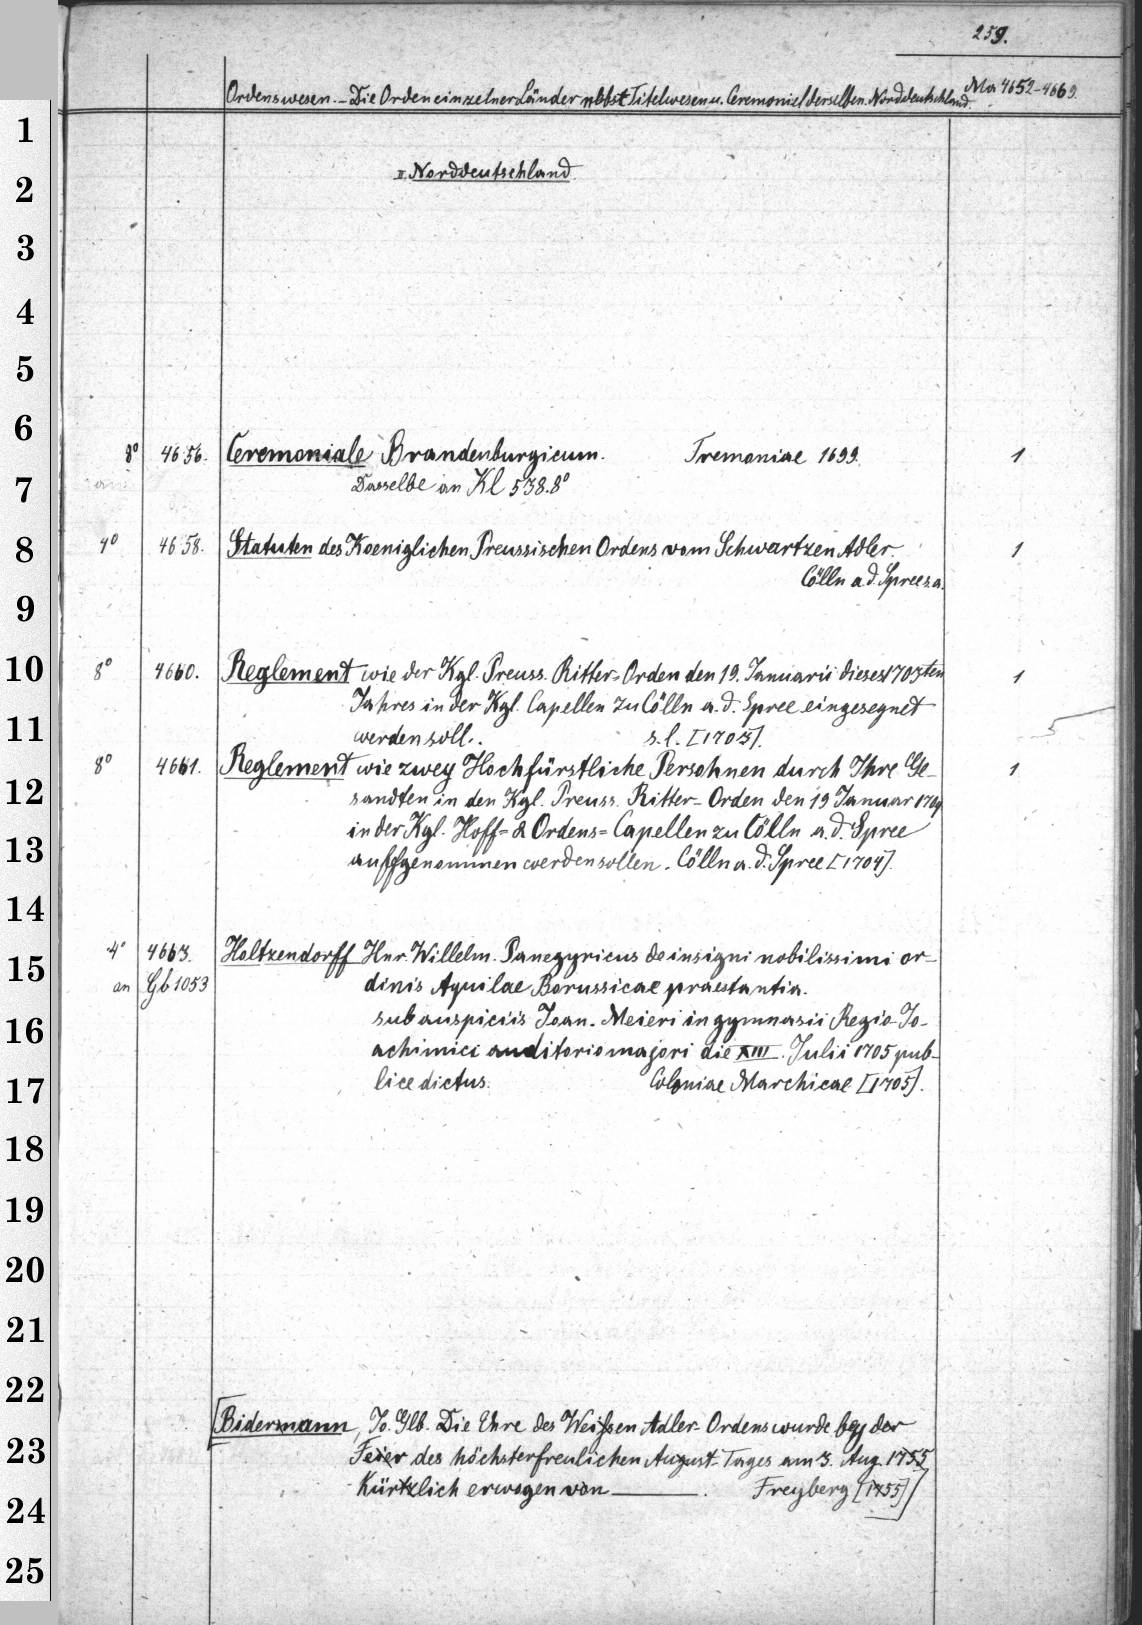 259.
Ordenswesen. – Die Orden einzelner Länder nebst Titelwesen u. Ceremoniel derselben. Norddeutschland. Ma 4652–4669.
II. Norddeutschland.
8° 4656. Ceremoniale Brandenburgicum. Tremoniae 1699. 1
Dasselbe an Kl 538.8°
4° 4658. Statuten des Koeniglichen Preussischen Ordens vom Schwartzen Adler. 1
Cölln a.d. Spree s.a.
8° 4660. Reglement wie der Kgl. Preuss. Ritter-Orden den 19. Januarii dieses 1703ten 1
Jahres in der Kgl. Capellen zu Cölln a.d. Spree eingesegnet
werden soll. s.l. [1703].
5
8° 4661. Reglement wie zwey Hochfürstliche Persohnen durch Ihre Ge- 1
sandten in den Kgl. Preuss. Ritter-Orden den 19 Januar 1704
in der Kgl. Hoff- & Ordens-Capellen zu Cölln a.d. Spree
auffgenommen werden sollen. Cölln a.d. Spree [1704].
4° 4663. Holtzendorff Hnr. Willelm. Panegyricus de insigni nobilissimi or-
an Gb 1053 dinis Aquilae Borussicae praestantia.
sub auspiciis Joan. Meieri in gymnasii Regio-Jo-
achimici auditorio majori die XIII. Julii 1705 pub-
lice dictus. Coloniae Marchicae [1705].
[Bidermann, Jo. Glb. Die Ehre des Weißen Adler-Ordens wurde bey der
Feier des höchsterfreulichen August-Tages am 3. Aug. 1755
Kürtzlich erwogen von ———. Freyberg [1755]]
1
2
3
4
5
6
7
8
9
10
11
12
13
14
15
16
17
18
19
20
21
22
23
24
25